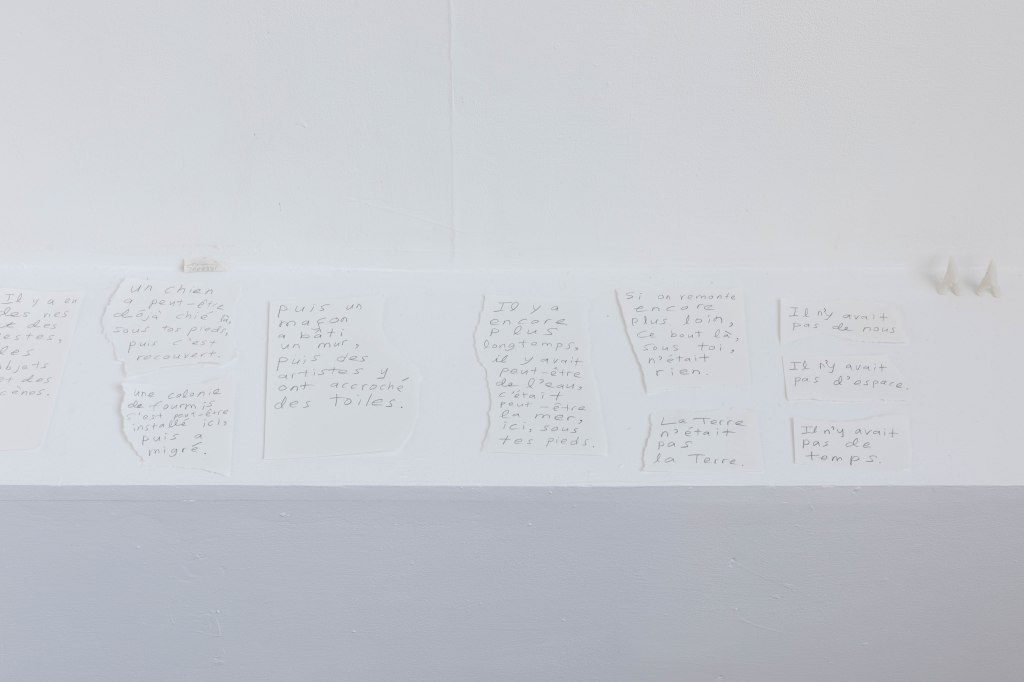 Il y a eu
des nes
des
les
objets
et des
scènes.
un chien
a peut-être
déjà chié là,
sous tes pieds,
puis c'est
recouvert.
une colonie
de fourmis
s'est peut-être
installé ici,
puis a
migré.
puis un
maçon
a bâti
un mur,
puis des
artistes y
ont accroché
des toiles.
Il y a
encore
plus
longtemps,
il y avait
peut-être
de l'eau,
c'était
peut-être
la mer,
ici, sous
tes pieds.
Si on remonte
encore
plus loin,
ce bout là,
sous toi,
n'était
rien.
La Terre
n'était
pas
la Terre.
Il n'y avait
pas de nous
Il n'y avait
pas d'espace.
Il n'y avait
pas de
temps.